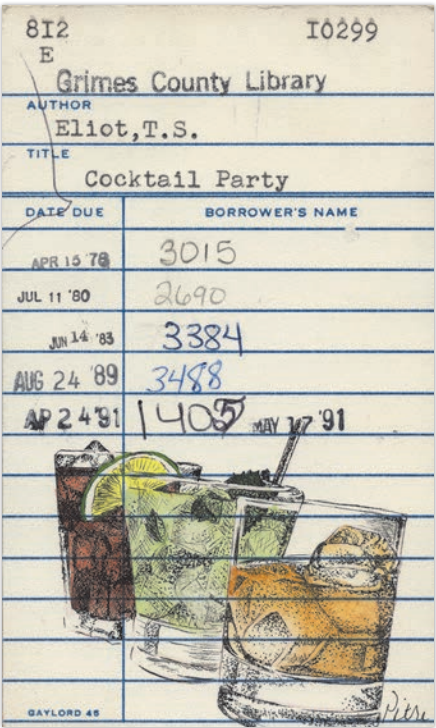 812 10299
E
Grimes County Library
AUTHOR
Eliot,T.S.
TITLE
Cocktail Party
DATE DUE BORROWER'S NAME
APR 15 '78 3015
JUL 11 '80 2690
JUN 14 '83 3384
AUG 24 '89 3488
AP 24 '91 1405 MAY 17 '91
GAYLORD 45